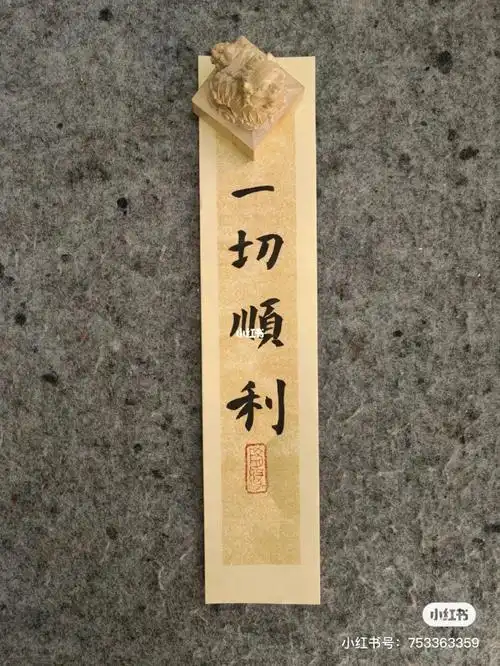 一切順利
小红书
小红书
小红书号：753363359